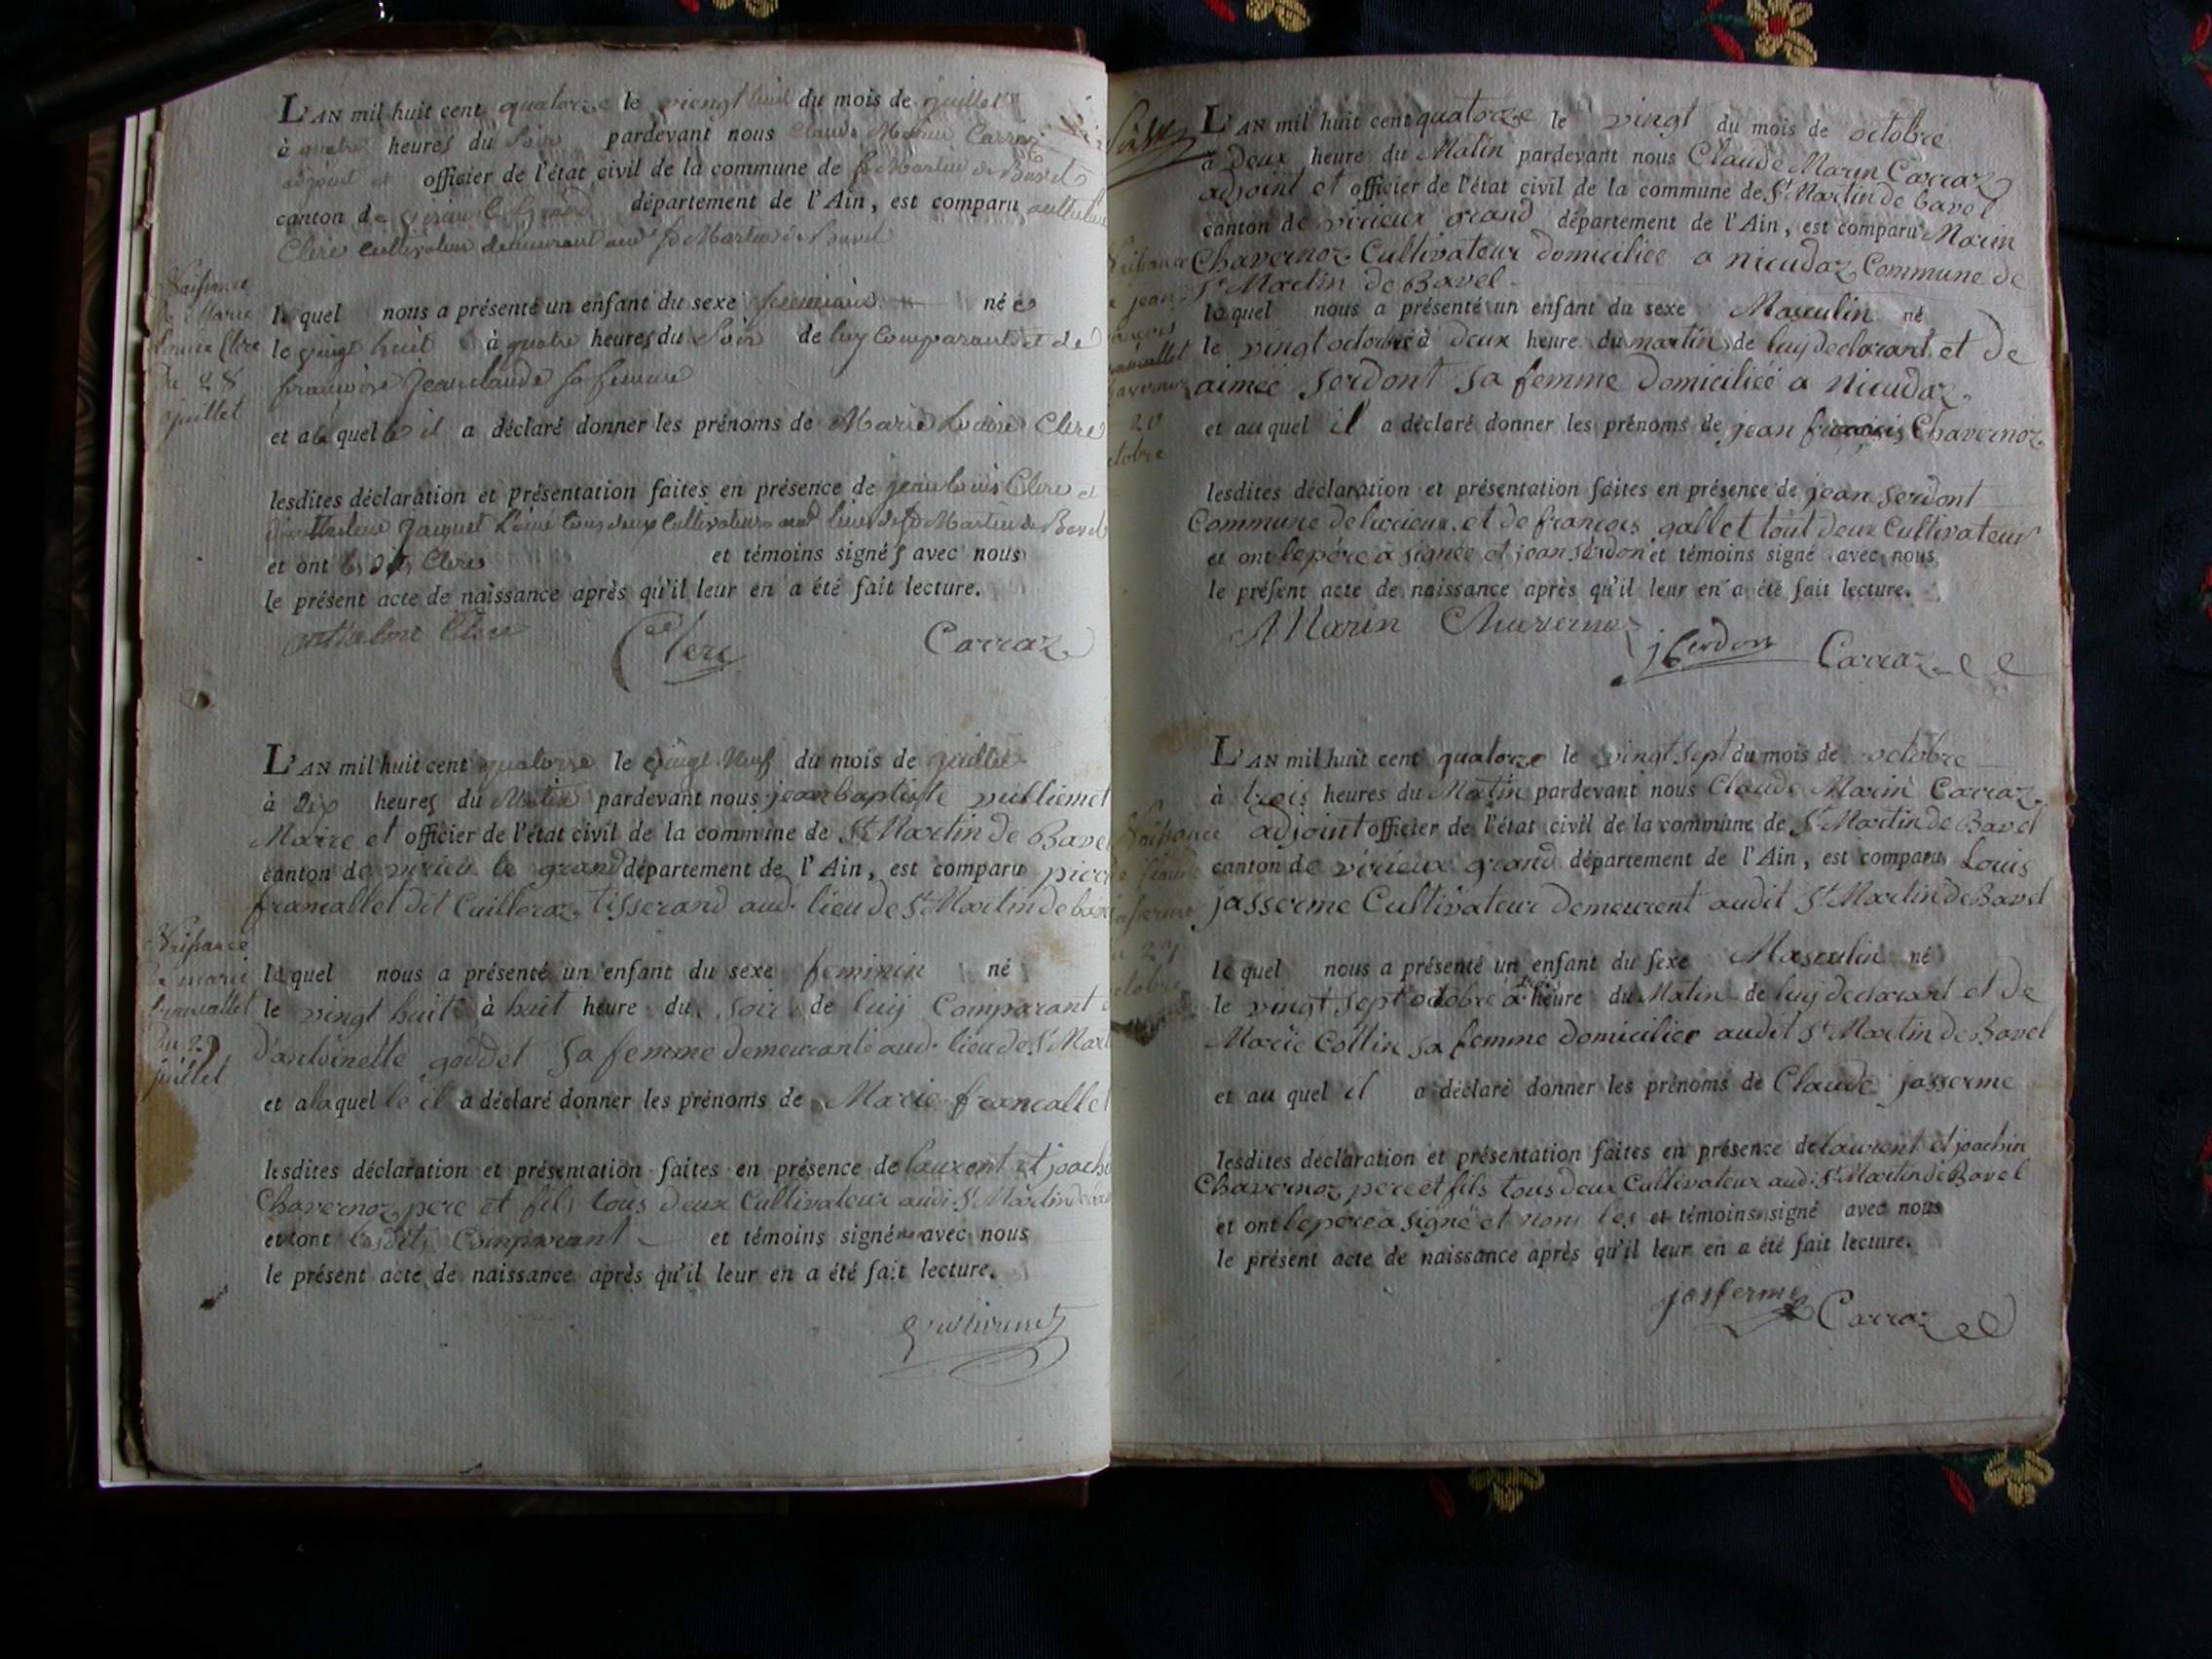 L'AN mil huit cent quatorze le viengt huit du mois de juillet
à quatre heures du Soir pardevant nous Claude Marin Carraz
adjoint et officier de l'état civil de la commune de St Martin de Bavel
canton de virieu le Grand département de l'Ain, est comparu anthelme
Clerc cultivateur demeurant aud St Martin de Bavel
Naissance
de Marie
Louise Clerc
du 28
juillet
le quel nous a présenté un enfant du sexe feminin né e
le vingt huit à quatre heures du Soir de luy Comparant et de
françoise Jeanclaude sa femme
et a la quel le il a déclaré donner les prénoms de Marie Louise Clerc
lesdites déclaration et présentation faites en présence de jean louis Clerc et
d'anthelme Jacquet L'ainé tous deux Cultivateurs aud lieu de St Martin de Bavel
et ont les dits Clercs et témoins signés avec nous
le présent acte de naissance après qu'il leur en a été fait lecture.
anthelme Clerc Clerc Carraz
L'AN mil huit cent quatorze le vingt Neuf du mois de juillet
à Dix heures du Matin pardevant nous jean baptiste vuilliemet
Maire et officier de l'état civil de la commune de St Martin de Bavel
canton de virieu le grand département de l'Ain, est comparu pierre
francallet dit Cuilleraz, tisserand aud. lieu de St Martin de bavel
Naissance
de marie
francallet
du 29
juillet
le quel nous a présenté un enfant du sexe feminin né
le vingt huit à huit heure du soir de luy Comparant et
d'antoinette goddet sa femme demeurante aud. lieu de St Mart
et a la quel le il a déclaré donner les prénoms de Marie francallet
lesdites déclaration et présentation faites en présence de laurent et joachin
Chavernoz pere et fils tous deux Cultivateur audi St Martin de bavel
et ont lesdits Comparant et témoins signé avec nous
le présent acte de naissance après qu'il leur en a été fait lecture.
Vuilliemet
L'AN mil huit cent quatorze le vingt du mois de octobre
à Deux heure du Matin pardevant nous Claude Marin Carraz
adjoint et officier de l'état civil de la commune de St Martin de bavel
canton de virieux grand département de l'Ain, est comparu Marin
Chavernoz Cultivateur domiciliee a nieudaz Commune de
St Martin de Bavel
Naissance
de jean
françois
francallet
Chavernoz
20
octobre
le quel nous a présenté un enfant du sexe Masculin né
le vingt octobre à deux heure du martin de luy declarant et de
aimée serdont sa femme domiciliéé a nieudaz
et au quel il a déclaré donner les prénoms de jean françois Chavernoz
lesdites déclaration et présentation faites en présence de jean serdont
Commune de lucieux et de françois gallet tout deux Cultivateur
et ont le père a signée et jean serdon et témoins signé avec nous
le présent acte de naissance après qu'il leur en a été fait lecture.
Marin Chavernoz j serdon Carraz
L'AN mil huit cent quatorze le vingt sept du mois de octobre
à trois heures du Matin pardevant nous Claude Marin Carraz
adjoint officier de l'état civil de la commune de St Martin de Bavel
canton de virieux grand département de l'Ain, est comparu Louis
jasserme Cultivateur demeurent audit St Martin de Bavel
Naissance
de Claude
jasserme
du 27
octobre
le quel nous a présenté un enfant du sexe Masculin né
le vingt sept octobre à trois heure du Matin de luy declarant et de
Marie Collin sa femme domiciliée audit St Martin de Bavel
et au quel il a déclaré donner les prénoms de Claude jasserme
lesdites déclaration et présentation faites en présence de laurent et joachin
Chavernoz pere et fils tous deux Cultivateur aud: St Martin de Bavel
et ont le père a signé et nom les et témoins signé avec nous
le présent acte de naissance après qu'il leur en a été fait lecture.
jasserme Carraz